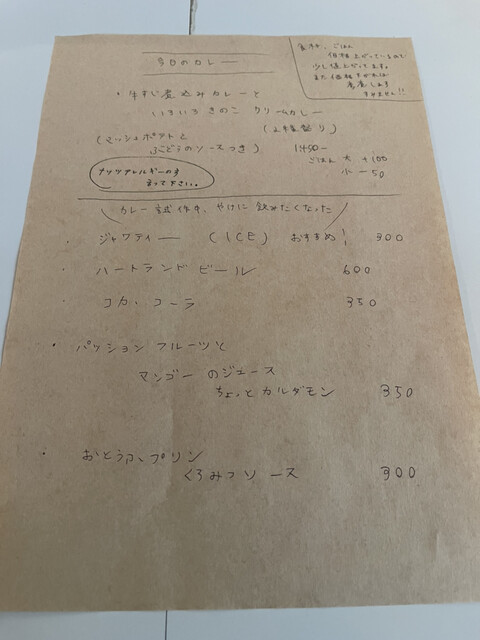 今日のカレー
食材、ごはん
価格上がっているので
少し値上がってます。
また価格下がれば
見直します
すみません!!
・牛すじ煮込みカレーと
いろいろきのこ クリームカレー
(2種盛り)
(マッシュポテトと
ぶどうのソースつき)
1450-
ごはん 大 +100
小 -50
ナッツアレルギーの方
言って下さい。
カレー試作中、やけに飲みたくなった
・ジャワティー (ICE) おすすめ! 300
・ハートランドビール 600
・コカ・コーラ 350
・パッションフルーツと
マンゴーのジュース
ちょっとカルダモン 350
・おとうふプリン
くろみつソース 300